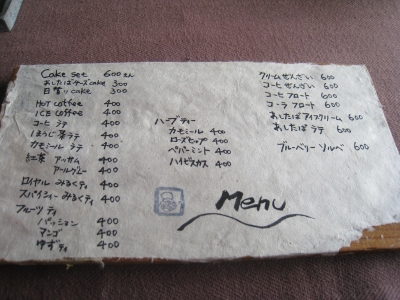 Cake set 600さん
あしたばチーズcake 300
日替りcake 300
HOT coffee 400
ICE coffee 400
コーヒ ラテ 400
ほうじ茶ラテ 400
カモミール ラテ 400
紅茶 アッサム 400
アールグレー 400
ロイヤル みるくティ 400
スパイシー みるくティ 400
フルーツ ティ
パッション 400
マンゴ 400
ゆずティ 400
ハーブ ティー
カモミール 400
ローズヒップ 400
ペパーミント 400
ハイビスカス 400
クリームぜんざい 600
コーヒぜんざい 600
コーヒ フロート 600
コーラ フロート 600
あしたば アイスクリーム 600
あしたば ラテ 600
ブルーベリー ソルベ 600
Menu